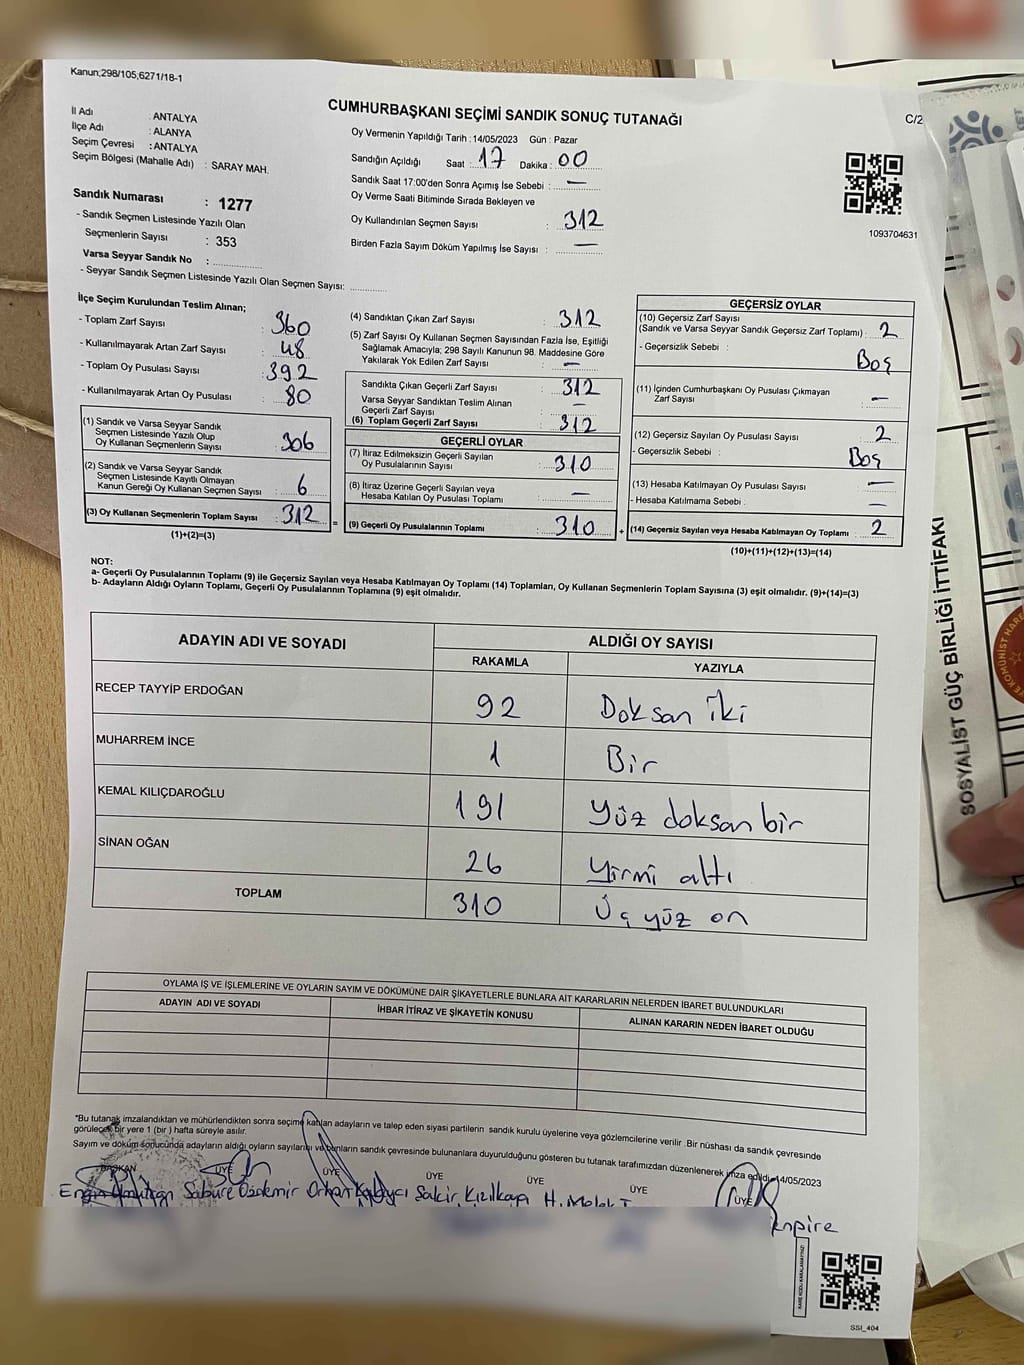 Kanun;298/105,6271/18-1
CUMHURBAŞKANI SEÇİMİ SANDIK SONUÇ TUTANAĞI
C/2
İl Adı : ANTALYA
İlçe Adı : ALANYA
Seçim Çevresi : ANTALYA
Seçim Bölgesi (Mahalle Adı) : SARAY MAH.
Sandık Numarası : 1277
- Sandık Seçmen Listesinde Yazılı Olan
Seçmenlerin Sayısı : 353
Varsa Seyyar Sandık No :
- Seyyar Sandık Seçmen Listesinde Yazılı Olan Seçmen Sayısı:
Oy Vermenin Yapıldığı Tarih : 14/05/2023 Gün : Pazar
Sandığın Açıldığı Saat : 17 Dakika : 00
Sandık Saat 17:00'den Sonra Açımış İse Sebebi : —
Oy Verme Saati Bitiminde Sırada Bekleyen ve
Oy Kullandırılan Seçmen Sayısı : 312
Birden Fazla Sayım Döküm Yapılmış İse Sayısı : —
1093704631
İlçe Seçim Kurulundan Teslim Alınan;
- Toplam Zarf Sayısı : 360
- Kullanılmayarak Artan Zarf Sayısı : 48
- Toplam Oy Pusulası Sayısı : 392
- Kullanılmayarak Artan Oy Pusulası : 80
(1) Sandık ve Varsa Seyyar Sandık
Seçmen Listesinde Yazılı Olup
Oy Kullanan Seçmenlerin Sayısı : 306
(2) Sandık ve Varsa Seyyar Sandık
Seçmen Listesinde Kayıtlı Olmayan
Kanun Gereği Oy Kullanan Seçmen Sayısı : 6
(3) Oy Kullanan Seçmenlerin Toplam Sayısı : 312
(1)+(2)=(3)
(4) Sandıktan Çıkan Zarf Sayısı : 312
(5) Zarf Sayısı Oy Kullanan Seçmen Sayısından Fazla İse, Eşitliği
Sağlamak Amacıyla; 298 Sayılı Kanunun 98. Maddesine Göre
Yakılarak Yok Edilen Zarf Sayısı : —
Sandıkta Çıkan Geçerli Zarf Sayısı : 312
Varsa Seyyar Sandıktan Teslim Alınan
Geçerli Zarf Sayısı : —
(6) Toplam Geçerli Zarf Sayısı : 312
GEÇERLİ OYLAR
(7) İtiraz Edilmeksizin Geçerli Sayılan
Oy Pusulalarının Sayısı : 310
(8) İtiraz Üzerine Geçerli Sayılan veya
Hesaba Katılan Oy Pusulası Toplamı : —
= (9) Geçerli Oy Pusulalarının Toplamı : 310
GEÇERSİZ OYLAR
(10) Geçersiz Zarf Sayısı
(Sandık ve Varsa Seyyar Sandık Geçersiz Zarf Toplamı) : 2
- Geçersizlik Sebebi : Boş
(11) İçinden Cumhurbaşkanı Oy Pusulası Çıkmayan
Zarf Sayısı : —
(12) Geçersiz Sayılan Oy Pusulası Sayısı : 2
- Geçersizlik Sebebi : Boş
(13) Hesaba Katılmayan Oy Pusulası Sayısı : —
- Hesaba Katılmama Sebebi : —
+ (14) Geçersiz Sayılan veya Hesaba Katılmayan Oy Toplamı : 2
(10)+(11)+(12)+(13)=(14)
NOT:
a- Geçerli Oy Pusulalarının Toplamı (9) ile Geçersiz Sayılan veya Hesaba Katılmayan Oy Toplamı (14) Toplamları, Oy Kullanan Seçmenlerin Toplam Sayısına (3) eşit olmalıdır. (9)+(14)=(3)
b- Adayların Aldığı Oyların Toplamı, Geçerli Oy Pusulalarının Toplamına (9) eşit olmalıdır.
ADAYIN ADI VE SOYADI ALDIĞI OY SAYISI
RAKAMLA YAZIYLA
RECEP TAYYİP ERDOĞAN 92 Doksan iki
MUHARREM İNCE 1 Bir
KEMAL KILIÇDAROĞLU 191 Yüz doksan bir
SİNAN OĞAN 26 Yirmi altı
TOPLAM 310 Üç yüz on
OYLAMA İŞ VE İŞLEMLERİNE VE OYLARIN SAYIM VE DÖKÜMÜNE DAİR ŞİKAYETLERLE BUNLARA AİT KARARLARIN NELERDEN İBARET BULUNDUKLARI
ADAYIN ADI VE SOYADI İHBAR İTİRAZ VE ŞİKAYETİN KONUSU ALINAN KARARIN NEDEN İBARET OLDUĞU
*Bu tutanak imzalandıktan ve mühürlendikten sonra seçime katılan adayların ve talep eden siyasi partilerin sandık kurulu üyelerine veya gözlemcilerine verilir .Bir nüshası da sandık çevresinde
görülecek bir yere 1 (bir) hafta süreyle asılır.
Sayım ve döküm sonucunda adayların aldığı oyların sayılarını ve bunların sandık çevresinde bulunanlara duyurulduğunu gösteren bu tutanak tarafımızdan düzenlenerek imza edildi. 14/05/2023
BAŞKAN ÜYE ÜYE ÜYE ÜYE ÜYE ÜYE
Sabure Özdemir Orhan Şakir Kızılkaya H. Melek
SSI_404
SOSYALİST GÜÇ BİRLİĞİ İTTİFAKI